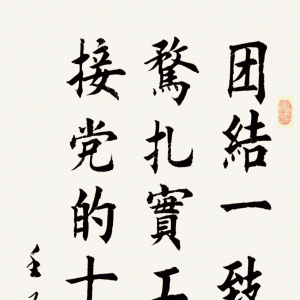 团結一致
騖扎實工
接党的十
壬